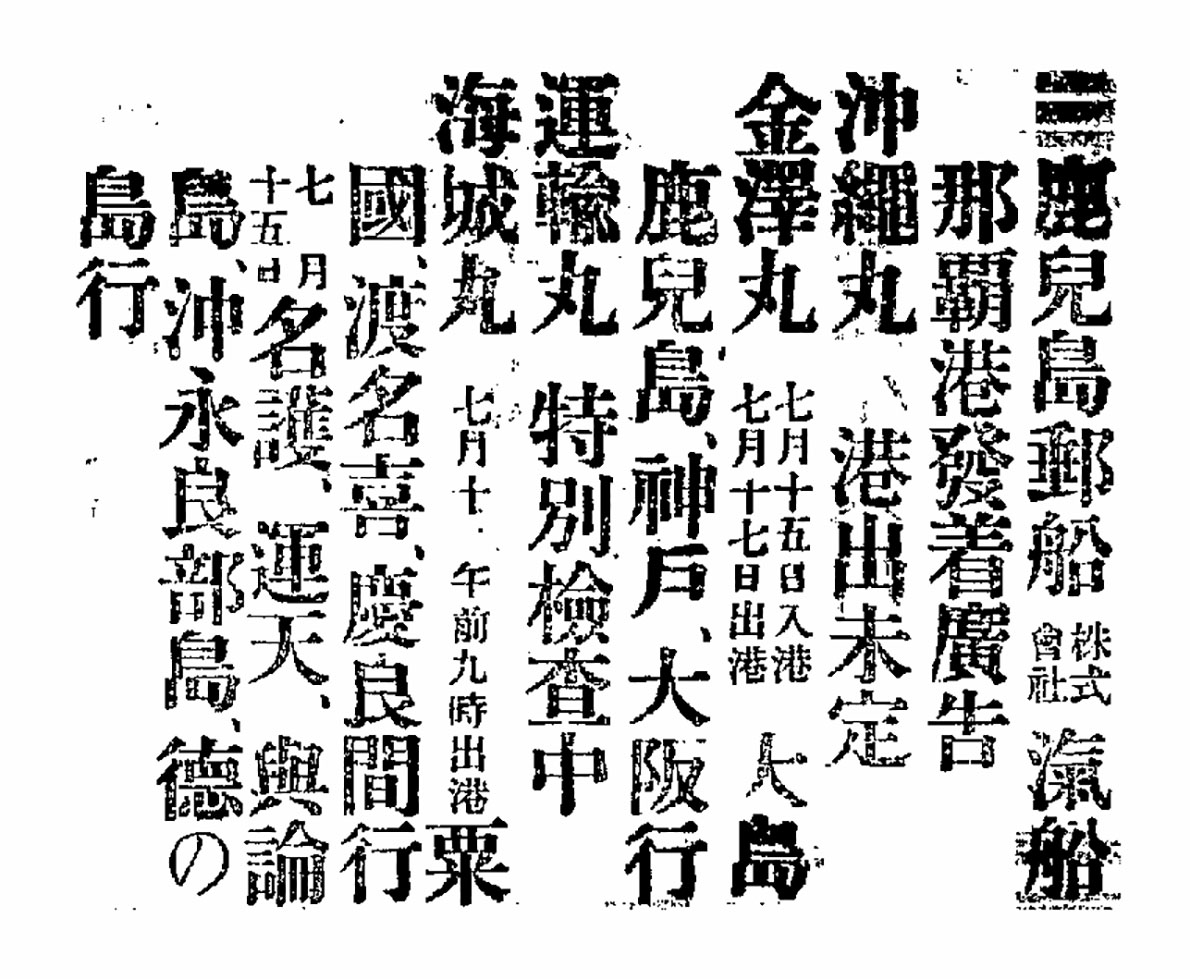 鹿兒島郵船株式會社滊船
那覇港發着廣告
沖繩丸 入港出未定
金澤丸 七月十五日入港七月十七日出港 大島
鹿兒島、神戸、大阪行
運輸丸 特別檢査中
海城丸 七月十 午前九時出港 粟
國、渡名喜、慶良間行
七月十五日名護、運天、與論
島、沖永良部島、徳の
島行